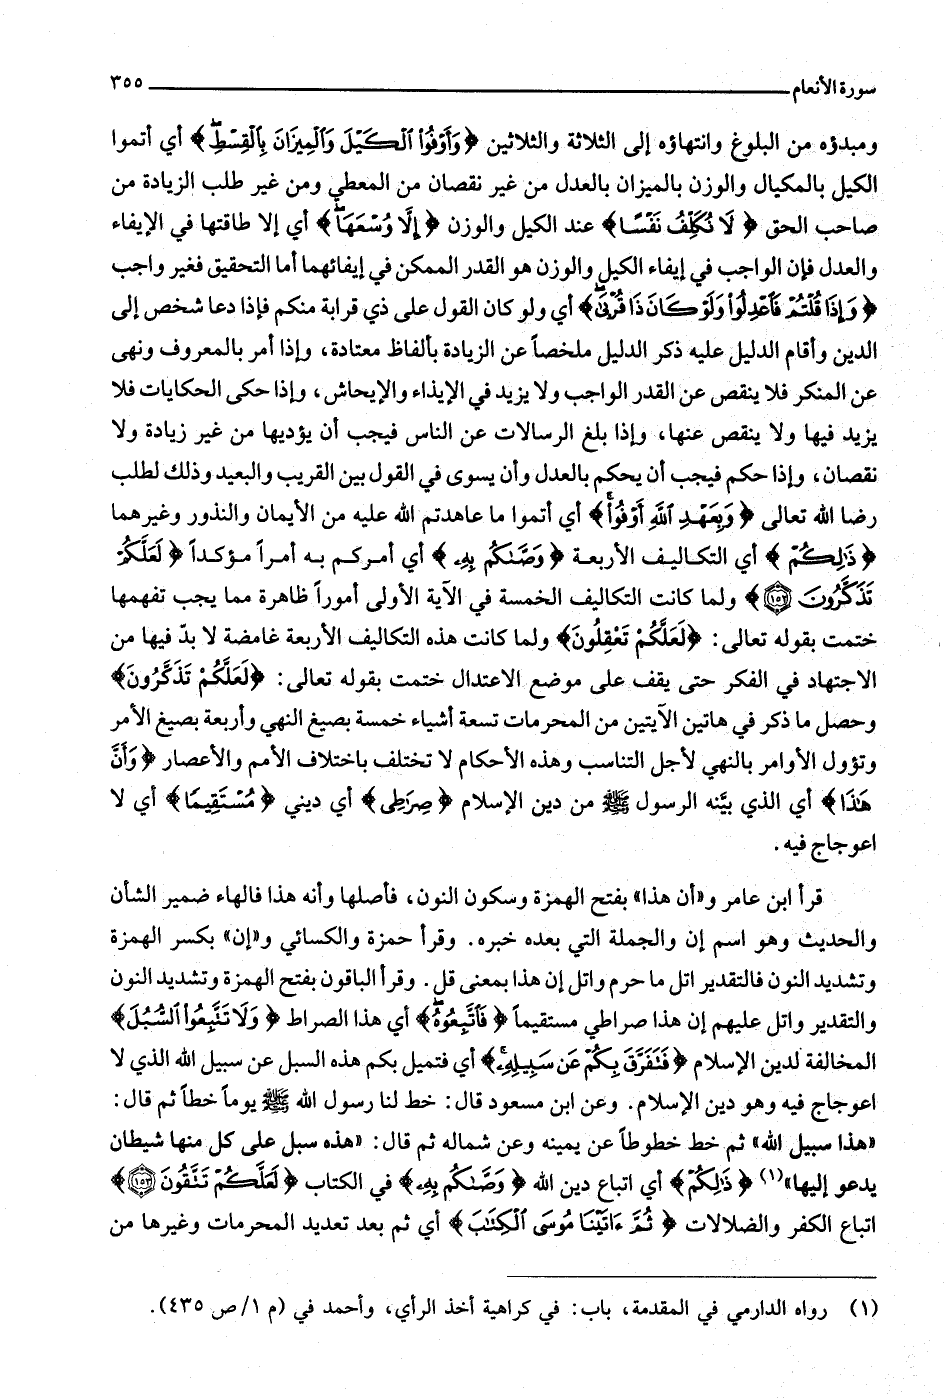 سورة الأنعام ٣٥٥
ومبدؤه من البلوغ وانتهاؤه إلى الثلاثة والثلاثين ﴿وَأَوْفُوا۟ ٱلْكَيْلَ وَٱلْمِيزَانَ بِٱلْقِسْطِ﴾ أي أتموا
الكيل بالمكيال والوزن بالميزان بالعدل من غير نقصان من المعطي ومن غير طلب الزيادة من
صاحب الحق ﴿لَا نُكَلِّفُ نَفْسًا﴾ عند الكيل والوزن ﴿إِلَّا وُسْعَهَا﴾ أي إلا طاقتها في الإيفاء
والعدل فإن الواجب في إيفاء الكيل والوزن هو القدر الممكن في إيفائهما أما التحقيق فغير واجب
﴿وَإِذَا قُلْتُمْ فَٱعْدِلُوا۟ وَلَوْ كَانَ ذَا قُرْبَىٰ﴾ أي ولو كان القول على ذي قرابة منكم فإذا دعا شخص إلى
الدين وأقام الدليل عليه ذكر الدليل ملخصاً عن الزيادة بألفاظ معتادة، وإذا أمر بالمعروف ونهى
عن المنكر فلا ينقص عن القدر الواجب ولا يزيد في الإيذاء والإيحاش، وإذا حكى الحكايات فلا
يزيد فيها ولا ينقص عنها، وإذا بلغ الرسالات عن الناس فيجب أن يؤديها من غير زيادة ولا
نقصان، وإذا حكم فيجب أن يحكم بالعدل وأن يسوى في القول بين القريب والبعيد وذلك لطلب
رضا الله تعالى ﴿وَبِعَهْدِ ٱللَّهِ أَوْفُوا۟﴾ أي أتموا ما عاهدتم الله عليه من الأيمان والنذور وغيرهما
﴿ذَٰلِكُمْ﴾ أي التكاليف الأربعة ﴿وَصَّىٰكُم بِهِۦ﴾ أي أمركم به أمراً مؤكداً ﴿لَعَلَّكُمْ
تَذَكَّرُونَ ١٥٢﴾ ولما كانت التكاليف الخمسة في الآية الأولى أموراً ظاهرة مما يجب تفهمها
ختمت بقوله تعالى: ﴿لَعَلَّكُمْ تَعْقِلُونَ﴾ ولما كانت هذه التكاليف الأربعة غامضة لا بدّ فيها من
الاجتهاد في الفكر حتى يقف على موضع الاعتدال ختمت بقوله تعالى: ﴿لَعَلَّكُمْ تَذَكَّرُونَ﴾
وحصل ما ذكر في هاتين الآيتين من المحرمات تسعة أشياء خمسة بصيغ النهي وأربعة بصيغ الأمر
وتؤول الأوامر بالنهي لأجل التناسب وهذه الأحكام لا تختلف باختلاف الأمم والأعصار ﴿وَأَنَّ
هَٰذَا﴾ أي الذي بيَّنه الرسول ﷺ من دين الإسلام ﴿صِرَٰطِى﴾ أي ديني ﴿مُسْتَقِيمًا﴾ أي لا
اعوجاج فيه.
قرأ ابن عامر و«أن هذا» بفتح الهمزة وسكون النون، فأصلها وأنه هذا فالهاء ضمير الشأن
والحديث وهو اسم إن والجملة التي بعده خبره. وقرأ حمزة والكسائي و«إن» بكسر الهمزة
وتشديد النون فالتقدير اتل ما حرم واتل إن هذا بمعنى قل. وقرأ الباقون بفتح الهمزة وتشديد النون
والتقدير واتل عليهم إن هذا صراطي مستقيماً ﴿فَٱتَّبِعُوهُ﴾ أي هذا الصراط ﴿وَلَا تَتَّبِعُوا۟ ٱلسُّبُلَ﴾
المخالفة لدين الإسلام ﴿فَتَفَرَّقَ بِكُمْ عَن سَبِيلِهِۦ﴾ أي فتميل بكم هذه السبل عن سبيل الله الذي لا
اعوجاج فيه وهو دين الإسلام. وعن ابن مسعود قال: خط لنا رسول الله ﷺ يوماً خطاً ثم قال:
«هذا سبيل الله» ثم خط خطوطاً عن يمينه وعن شماله ثم قال: «هذه سبل على كل منها شيطان
يدعو إليها»(١) ﴿ذَٰلِكُمْ﴾ أي اتباع دين الله ﴿وَصَّىٰكُم بِهِۦ﴾ في الكتاب ﴿لَعَلَّكُمْ تَتَّقُونَ ١٥٣﴾
اتباع الكفر والضلالات ﴿ثُمَّ ءَاتَيْنَا مُوسَى ٱلْكِتَٰبَ﴾ أي ثم بعد تعديد المحرمات وغيرها من
(١) رواه الدارمي في المقدمة، باب: في كراهية أخذ الرأي، وأحمد في (م ١/ص ٤٣٥).